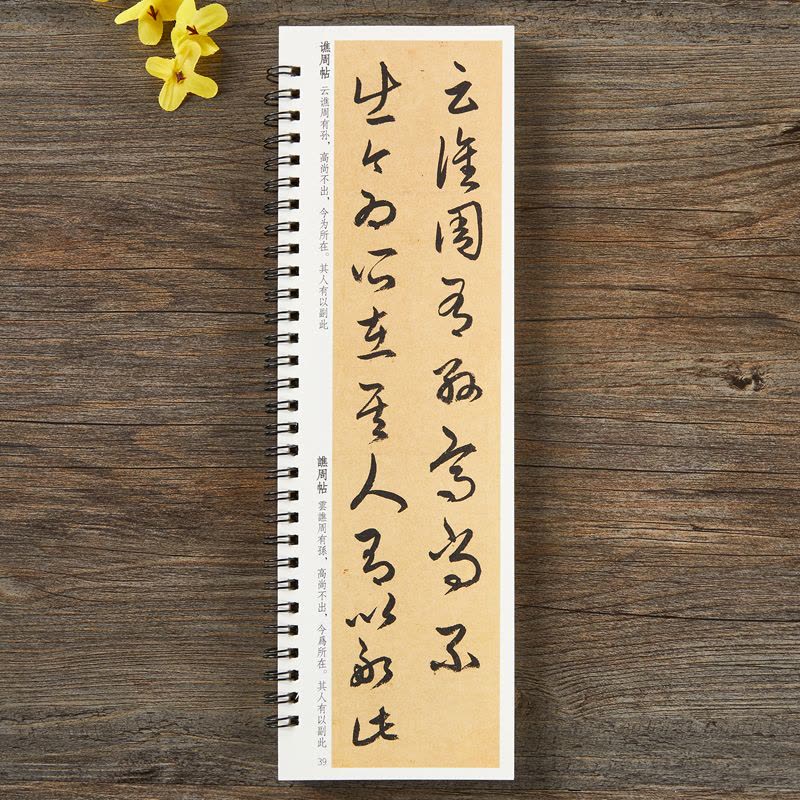 云譙周有孫高尚不
出今為所在其人有以副此
谯周帖 云谯周有孙，高尚不出，今为所在。其人有以副此
譙周帖 雲譙周有孫，高尚不出，今爲所在。其人有以副此
39